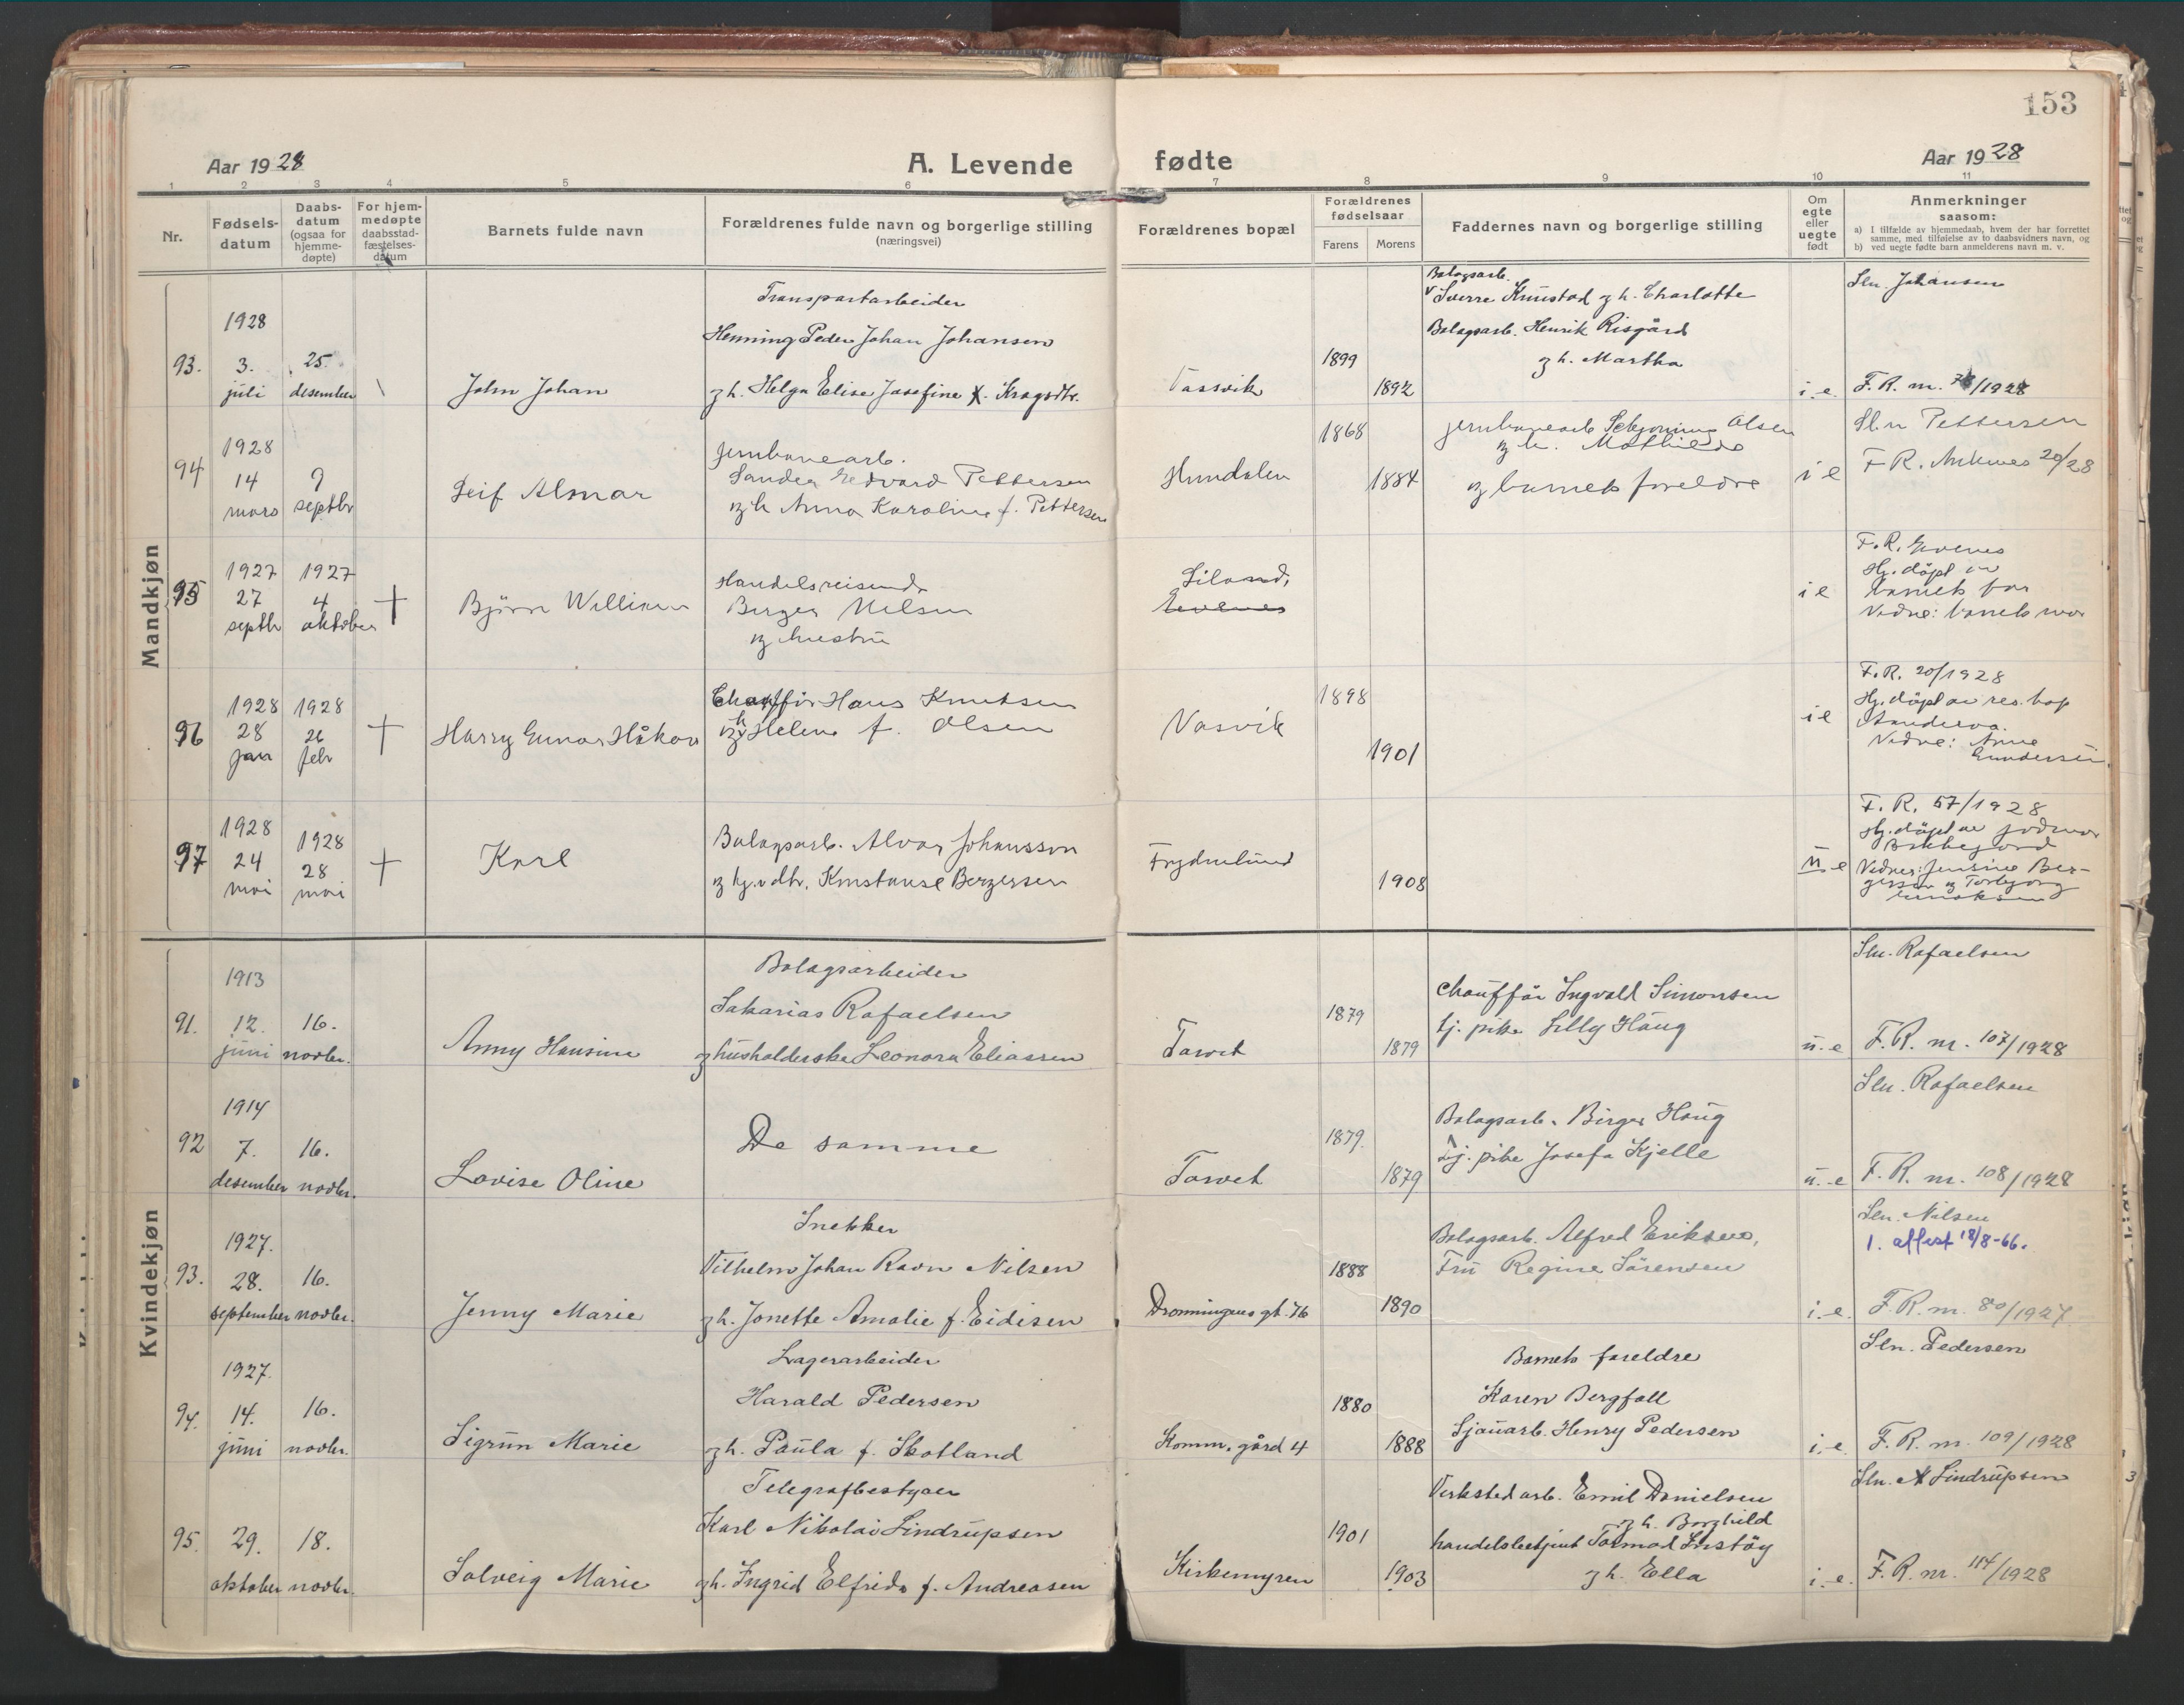 153
Aar 1928
A. Levende fødte
Aar 1928
1 2 3 4 5 6 7 8 9 10 11
Nr.
Fødsels-
datum
Daabs-
datum
(ogsaa for
hjemme-
døpte)
For hjem-
medøpte
daabsstad-
fæstelses-
datum
Barnets fulde navn
Forældrenes fulde navn og borgerlige stilling
(næringsvei)
Forældrenes bopæl
Forældrenes
fødselsaar
Farens Morens
Faddernes navn og borgerlige stilling
Om
egte
eller
uegte
født
Anmerkninger
saasom:
a) I tilfælde av hjemmedaab, hvem der har forrettet
samme, med tilføielse av to daabsvidners navn, og
b) ved uegte fødte barn anmelderens navn m. v.
Mandkjøn
93.
1928
3.
juli
25.
desember
John Johan
Transportarbeider
Henning Peder Johan Johansen
og h. Helga Elise Josefine f. Kragsdtr.
Vassvik
1899
1892
Bolagsarb.
Sverre Knustad og h. Charlotte
Bolagsarb. Henrik Risgård
og h. Martha
i. e.
Sln. Johansen
F. R. nr. /1928
94
1928
14
mars
9
septbr
Leif Almar
Jernbanearb.
Sander Edvard Pettersen
og h Anna Karoline f. Pettersen
Hundalen
1868
1884
jernbanearb Olsen
og h. Mathilde
og barnets foreldre
i e
Sln Pettersen
F R. Ankenes 20/28
95
1927
27
septbr
1927
4
oktober
†
Björn William
Handelsreisende
Birger Nilsen
og hustru
Liland,
Evenes
i e
F. R. Evenes
Hj. döpt av
barnets far
Vidne: barnets mor
96
1928
28
jan
1928
26
febr
†
Harry Gunnar Håkon
Chaufför Hans Knutsen
og h Helene f. Olsen
Vasvik
1898
1901
i e
F. R. 20/1928
Hj. döpt av res. kap
Vidne: Anna
Gundersen.
97
1928
24
mai
1928
28
mai
†
Karl
Bolagsarb. Alvar Johansson
og hj. v. dtr. Konstanse Bergersen
Frydenlund
1908
u e
F. R. 57/1928
Hj. döpt av jodmor
Bakkejord
Vidner: Jensine Ber-
gersen og Torbjorg
Kvindekjøn
91.
1913
12.
juni
16.
novbr.
Anny Hansine
Bolagsarbeider
Sakarias Rafaelsen
og husholderske Leonora Eliassen
Taraet
1879
1879
Chaufför Ingvald Simonsen
tj. pike Lilly Haug
u. e
Sln. Rafaelsen
F. R. nr. 107/1928
92
1914
7.
desember
16.
novbr.
Lovise Oline
De samme
Taraet
1879.
1879
Bolagsarb. Birger Haug
Tj. pike Josefa Kjelle
u. e
Sln. Rafaelsen
F. R. nr. 108/1928
93.
1927.
28.
september
16.
novbr.
Jenny Marie
Snekker
Vilhelm Johan Ravn Nilsen
og h. Jonette Amalie f. Eidisen
Dronningens gt. 76
1888
1890
Bolagsarb. Alfred Eriksen,
Fru Regine Sörensen
i. e.
Sln. Nilsen
1. attest 18/8-66.
F. R. nr. 80/1927
94.
1927.
14.
juni
16.
novbr.
Sigrun Marie
Lagerarbeider
Harald Pedersen
og h. Paula f. Skotland
Komm. gård 4
1880
1888
Barnets foreldre
Karen Bergfall
Sjauarb. Henry Pedersen
i. e.
Sln. Pedersen
F. R. nr. 109/1928
95.
29.
oktober
18.
novbr.
Solveig Marie
Telegrafbestyrer
Karl Nikolai Lindrupsen
og h. Ingrid Elfrida f. Andreasen
Kirkemyren
1901
1903
Verksted arb. Emil Danielsen
og h. Borghild
handelsbetjent Tormod Instöy
og h. Ella
i. e.
Sln. Lindrupsen
F. R. nr. 114/1928